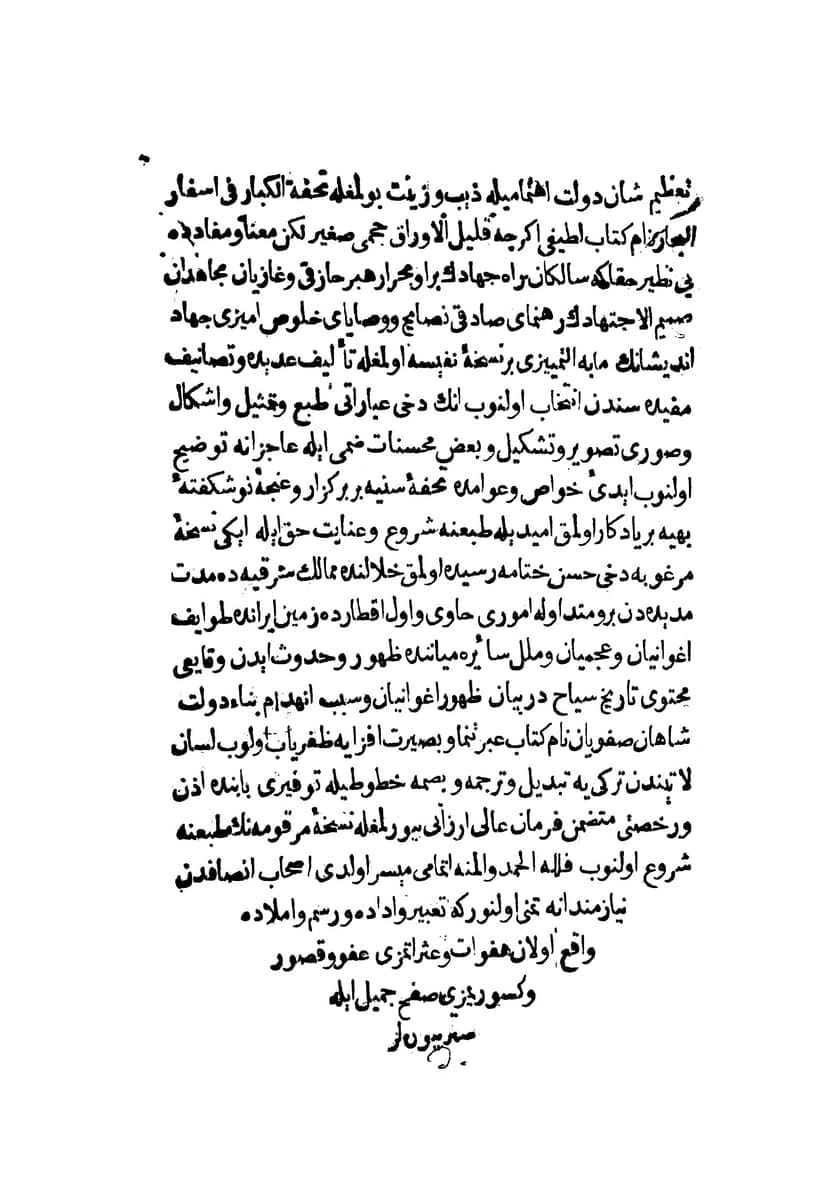 تعظیم شان دولت اهتمامیله ذیب و زینت بولمغله تحفة الکبار فی اسفار
البحار نام کتاب لطیفی اکرچه قلیل الاوراق حجمی صغیر لکن معنا و مفادده
بی نظیر حقاکه سالکان راه جهادك بر او بحرار هبر حازقی و غازیان مجاهدان
صمیم الاجتهادك رهنمای صادقی نصایح و وصایای خلوص امیزی جهاد
اندیشانك مابه التمییزی بر نسخهٔ نفیسه اولمغله تألیف عدیده و تصانیف
مفیده سندن انتخاب اولنوب انك دخی عباراتی طبع و تمثیل و اشکال
و صوری تصویر و تشکیل و بعض محسنات ضمی ایله عاجزانه توضیح
اولنوب ابدئ خواص و عوامده تحفهٔ سنیه بر برکزار و غنجهٔ نوشکفتهٔ
بهیه بر یادکار اولمق امیدیله طبعنه شروع و عنایت حق ایله ایکی نسخهٔ
مرغوبه دخی حسن ختامه رسیده اولمق خلالنده ممالك شرقیه ده مدت
مدیده دن برو متداوله اموری حاوی و اول اقطارده زمین ایرانده طوایف
اغوانیان و عجمیان و ملل سائره میاننده ظهور و حدوث ایدن وقایعی
محتوی تاریخ سیاح در بیان ظهور اغوانیان و سبب انهدام بناء دولت
شاهان صفویان نام کتاب عبرتنما و بصیرت افزایه ظفریاب اولوب لسان
لاتیندن ترکی یه تبدیل و ترجمه و بصمه خطوطیله توفیری بابنده اذن
و رخصتی متضمن فرمان عالی ارزانی بیورلمغله نسخهٔ مرقومه نك طبعنه
شروع اولنوب فلله الحمد والمنه اتمامی میسر اولدی اصحاب انصافدن
نیازمندانه تمنی اولنور که تعبیر و اداده و رسم و املاده
واقع اولان هفوات و عثراتمزی عفو و قصور
و کسوریمزی صفح جمیل ایله
ستر بیوره لر